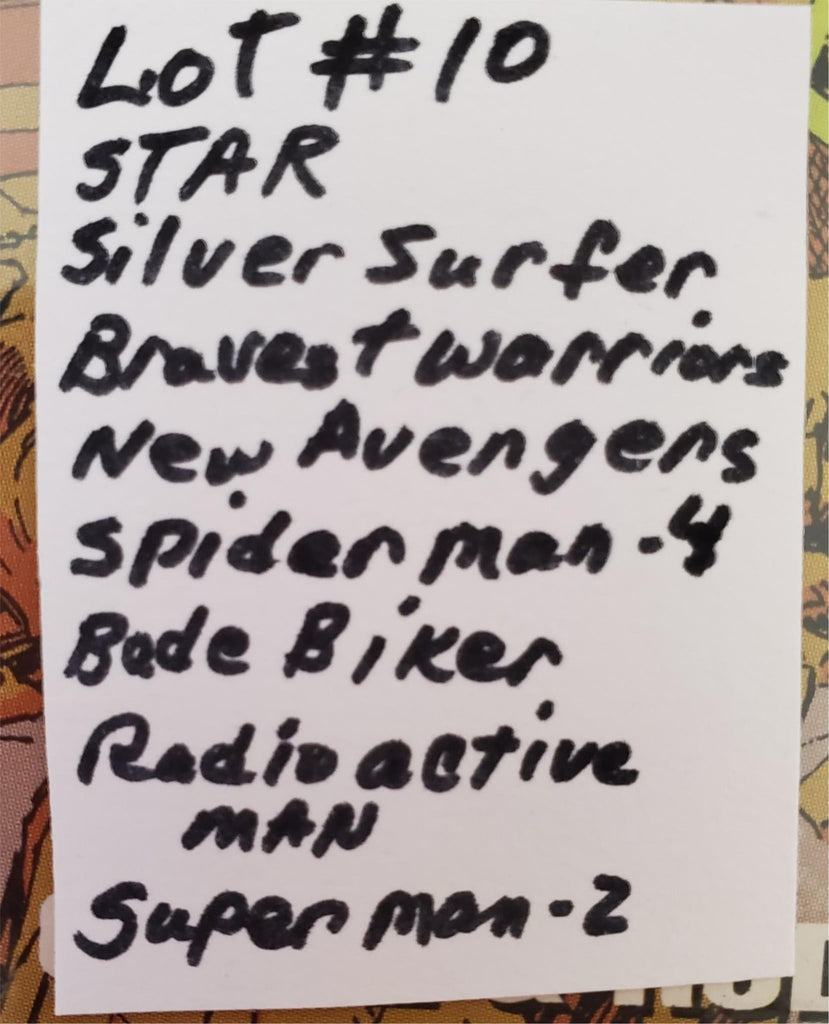 LOT #10
STAR
Silver Surfer
Bravest warriors
New Avengers
Spider man - 4
Bade Biker
Radio active
MAN
Super man - 2